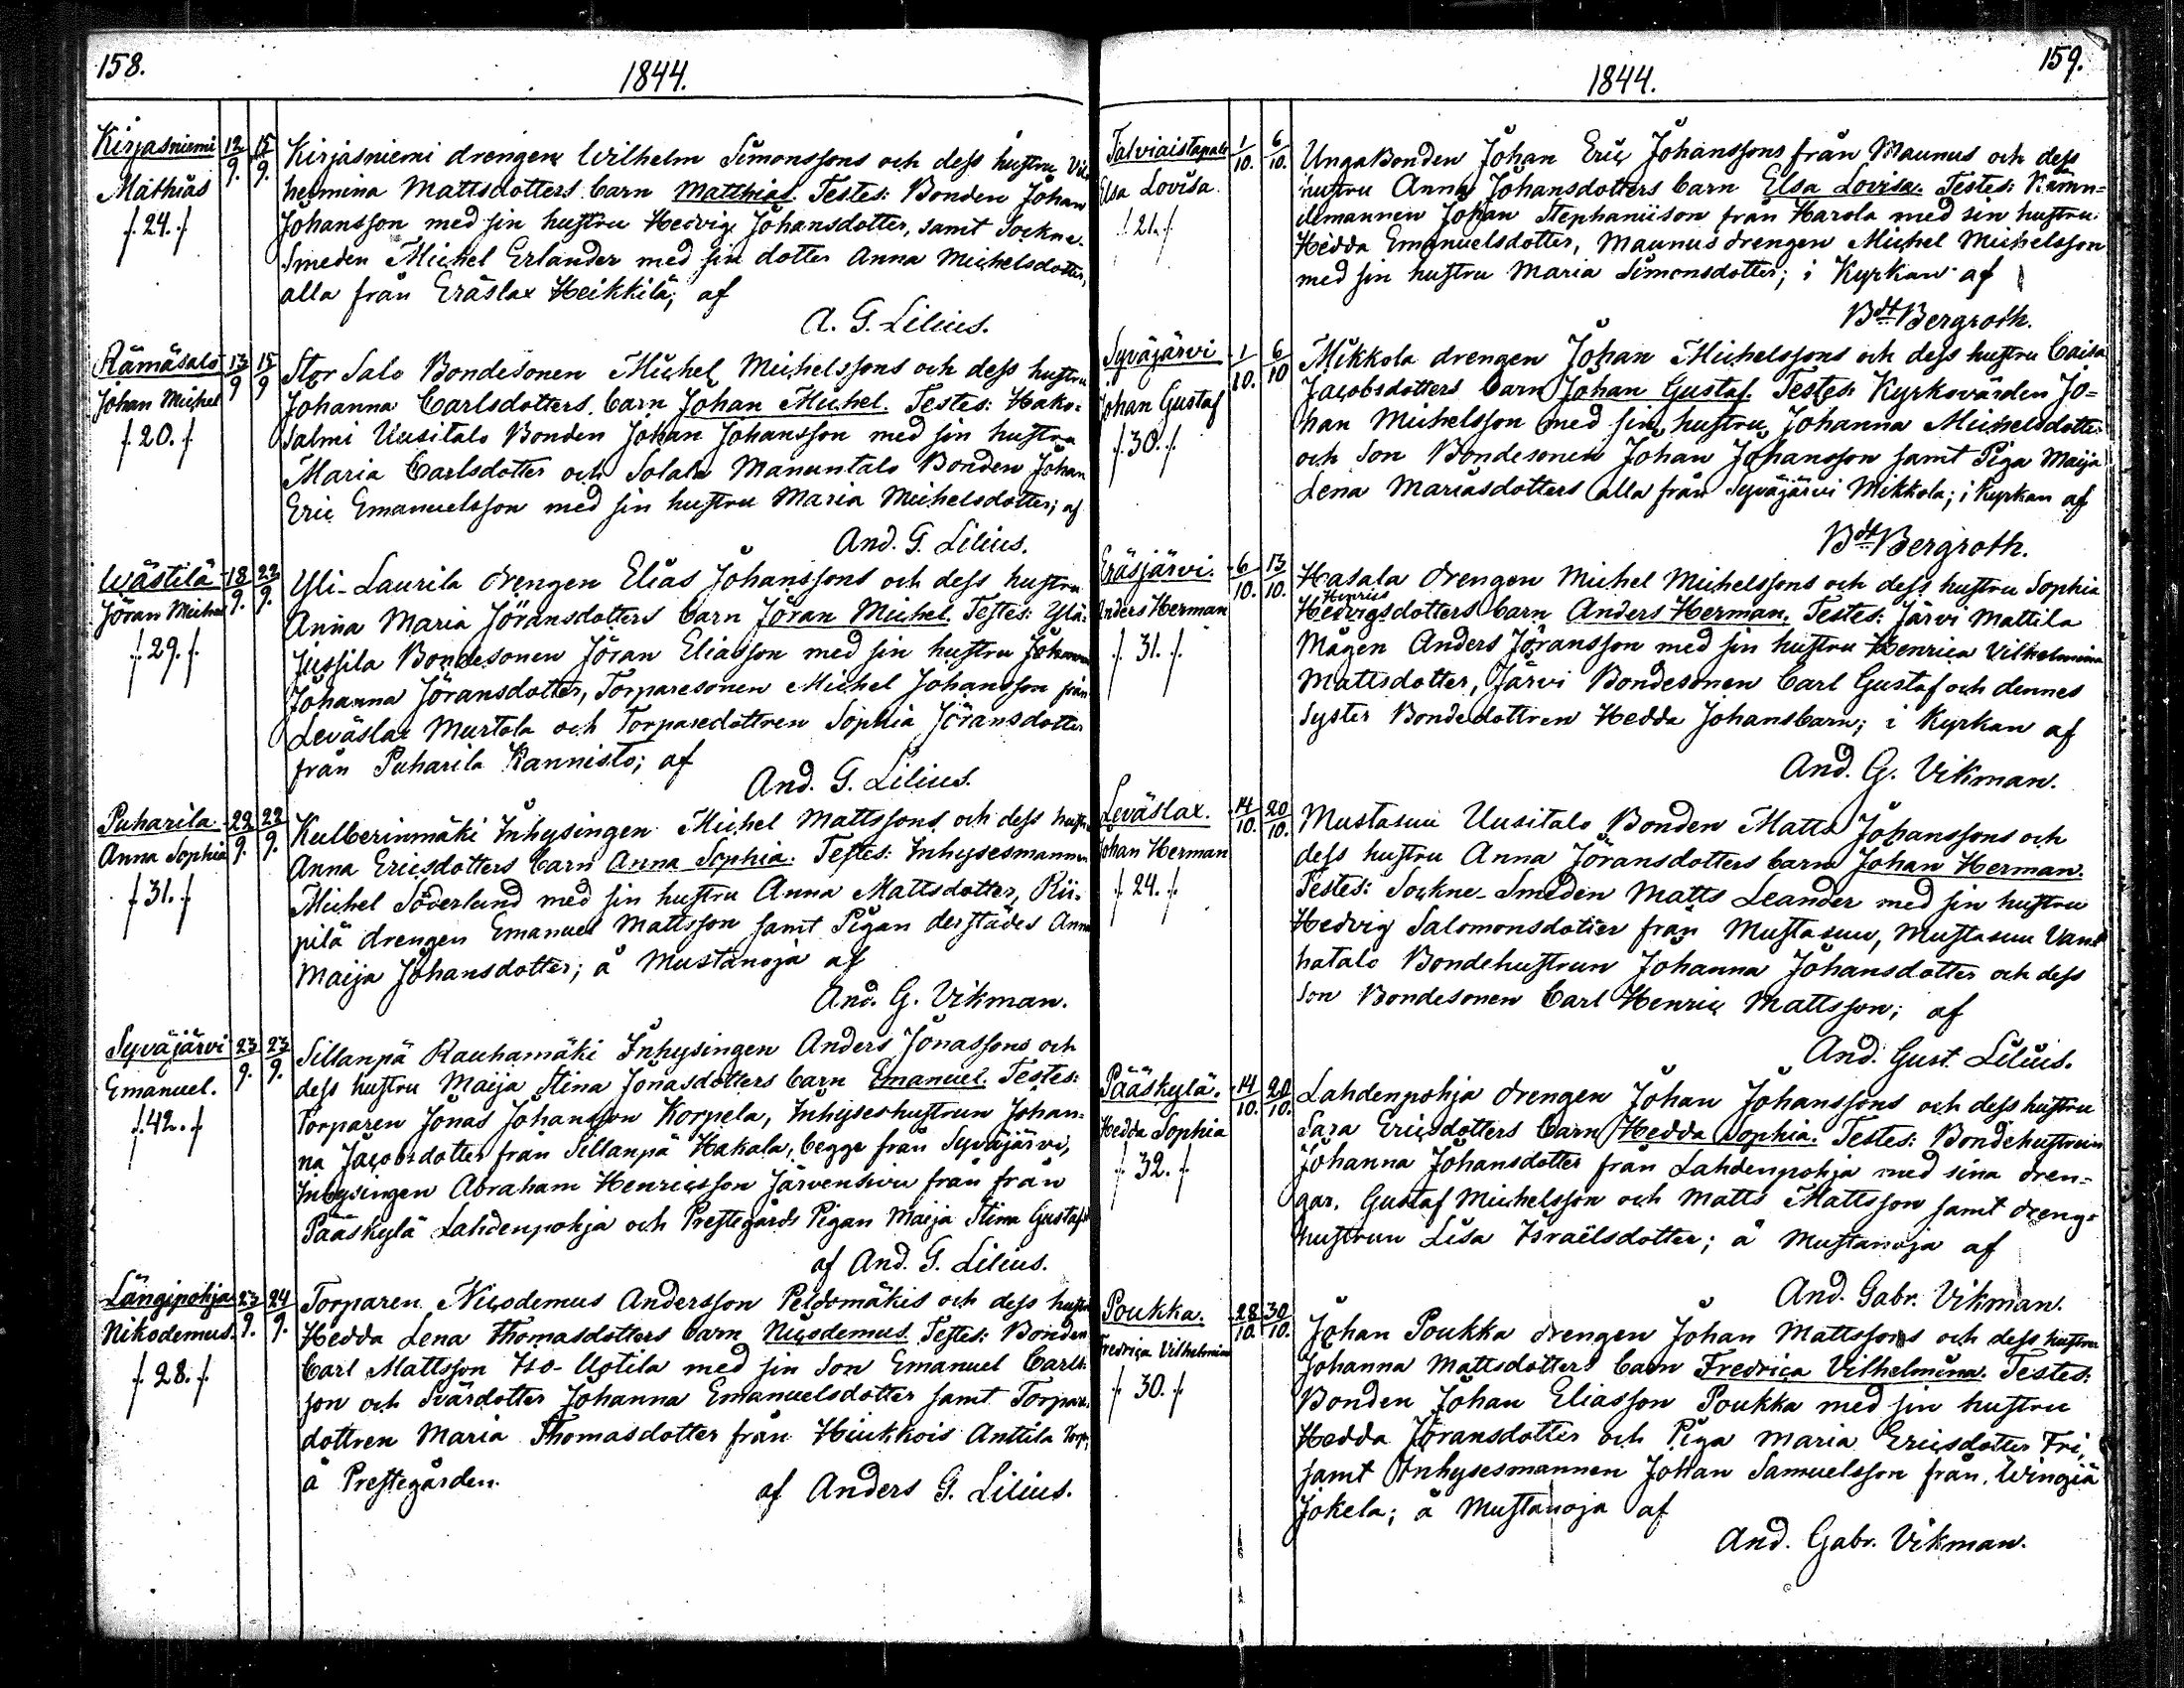 158.
1844.
Kirjasniemi 12/9. 15/9.
Mathias
f. 24. f
Kirjasniemi drengen Wilhelm Simonssons och dess hustru Vil-
helmina Mattsdotters barn Matthias. Testes: Bonden Johan
Johansson med sin hustru Hedvig Johansdotter, samt Sockne-
Smeden Michel Erlander med sin dotter Anna Michelsdotter,
alla från Eräslax Heikkilä; af
A. G. Lilius.
Rämäsalo 13/9 15/9
Johan Michel
f. 20. f
Stor Salo Bondesonen Michel Michelssons och dess hustru
Johanna Carlsdotters barn Johan Michel. Testes: Hako-
salmi Uusitalo Bonden Johan Johansson med sin hustru
Maria Carlsdotter och Solala Manuntalo Bonden Johan
Eric Emanuelsson med sin hustru Maria Michelsdotter; af
And. G. Lilius.
Wästilä 18/9. 22/9.
Jöran Michel
f. 29. f.
Yli-Laurila drengen Elias Johanssons och dess hustru
Anna Maria Jöransdotters barn Jöran Michel. Testes: Ylä-
Jussila Bondesonen Jöran Eliasson med sin hustru Johanna
Johanna Jöransdotter, Torparesonen Michel Johansson från
Leväslax Murtola och Torparedottren Sophia Jöransdotter
från Puharila Kannisto; af
And. G. Lilius.
Puharila 22/9. 22/9.
Anna Sophia
f. 31. f
Kulberinmäki Inhysingen Michel Mattssons och dess hustru
Anna Ericsdotters barn Anna Sophia. Testes: Inhysesmannen
Michel Söderlund med sin hustru Anna Mattsdotter, Rii-
pilä drengen Emanuel Mattsson samt Pigan derstädes Anna
Maija Johansdotter; å Mustanoja af
And. G. Vikman.
Syväjärvi 23/9. 23/9.
Emanuel.
f. 42. f
Sillanpä Rauhamäki Inhysingen Anders Jonassons och
dess hustru Maija Stina Jonasdotters barn Emanuel. Testes:
Torparen Jonas Johansson Korpela, Inhyseshustrun Johan-
na Jacobsdotter från Sillanpä Hakala, begge från Syväjärvi,
Inhysingen Abraham Henricsson Järvensivu från från
Pääskylä Lahdenpohja och Prestegårds Pigan Maija Stina Gustafsd
af And. G. Lilius.
Längipohja 23/9. 24/9.
Nikodemus.
f. 28. f.
Torparen Nicodemus Andersson Peldomäkis och dess hustru
Hedda Lena Thomasdotters barn Nicodemus. Testes: Bonden
Carl Mattsson Iso-Uotila med sin Son Emanuel Carls-
son och Svärdotter Johanna Emanuelsdotter samt Torpare-
dottren Maria Thomasdotter från Hiukkois Anttila
å Prestegården.
af Anders G. Lilius.
159.
1844.
Talviaistapale 1/10. 6/10.
Elsa Lovisa.
f. 21. f
UngaBonden Johan Eric Johanssons från Maunus och dess
hustru Anna Johansdotters barn Elsa Lovisa. Testes: Nämn-
demannen Johan Stephaniison från Harola med sin hustru
Hedda Emanuelsdotter, Maunus drengen Michel Michelsson
med sin hustru Maria Simonsdotter; i Kyrkan af
Bdt Bergroth.
Syväjärvi 1/10. 6/10
Johan Gustaf
f. 30. f.
Mikkola drengen Johan Michelssons och dess hustru Caisa
Jacobsdotters barn Johan Gustaf. Testes: Kyrkovärden Jo-
han Michelsson med sin hustru Johanna Michelsdotter
och Son Bondesonen Johan Johansson samt Piga Maija
Lena Mariasdotters alla från Syväjärvi Mikkola; i Kyrkan af
Bdt Bergroth.
Eräsjärvi. 6/10. 13/10.
Anders Herman
f. 31. f.
Hasala drengen Michel Michelssons och dess hustru Sophia
Henrics
Hedvigsdotters barn Anders Herman. Testes: Järvi Mattila
Mågen Anders Jöransson med sin hustru Henrica Vilhelmina
Mattsdotter, Järvi Bondesonen Carl Gustaf och dennes
Syster Bondedottren Hedda Johansbarn; i Kyrkan af
And. G. Vikman.
Leväslax. 14/10. 20/10.
Johan Herman
f. 24. f.
Mustasuu Uusitalo Bonden Matts Johanssons och
dess hustru Anna Jöransdotters barn Johan Herman.
Testes: Sockne-Smeden Matts Leander med sin hustru
Hedvig Salomonsdotter från Mustasuu, Mustasuu Van-
hatalo Bondehustrun Johanna Johansdotter och dess
Son Bondesonen Carl Henric Mattsson; af
And. Gust. Lilius.
Pääskylä. 14/10. 20/10.
Hedda Sophia
f. 32. f
Lahdenpohja drengen Johan Johanssons och dess hustru
Sara Ericsdotters barn Hedda Sophia. Testes: Bondehustrun
Johanna Johansdotter från Lahdenpohja med sina dren-
gar, Gustaf Michelsson och Matts Mattsson samt dreng-
hustrun Lisa Israëlsdotter; å Mustanoja af
And. Gabr. Vikman.
Poukka. 28/10. 30/10.
Fredrica Vilhelmina
f. 30. f
Johan Poukka drengen Johan Mattssons och dess hustru
Johanna Mattsdotters barn Fredrica Vilhelmina. Testes:
Bonden Johan Eliasson Poukka med sin hustru
Hedda Jöransdotter och Piga Maria Ericsdotter Fri,
samt Inhysesmannen Johan Samuelsson från Wingiä
Jokela; å Mustanoja af
And. Gabr. Vikman.